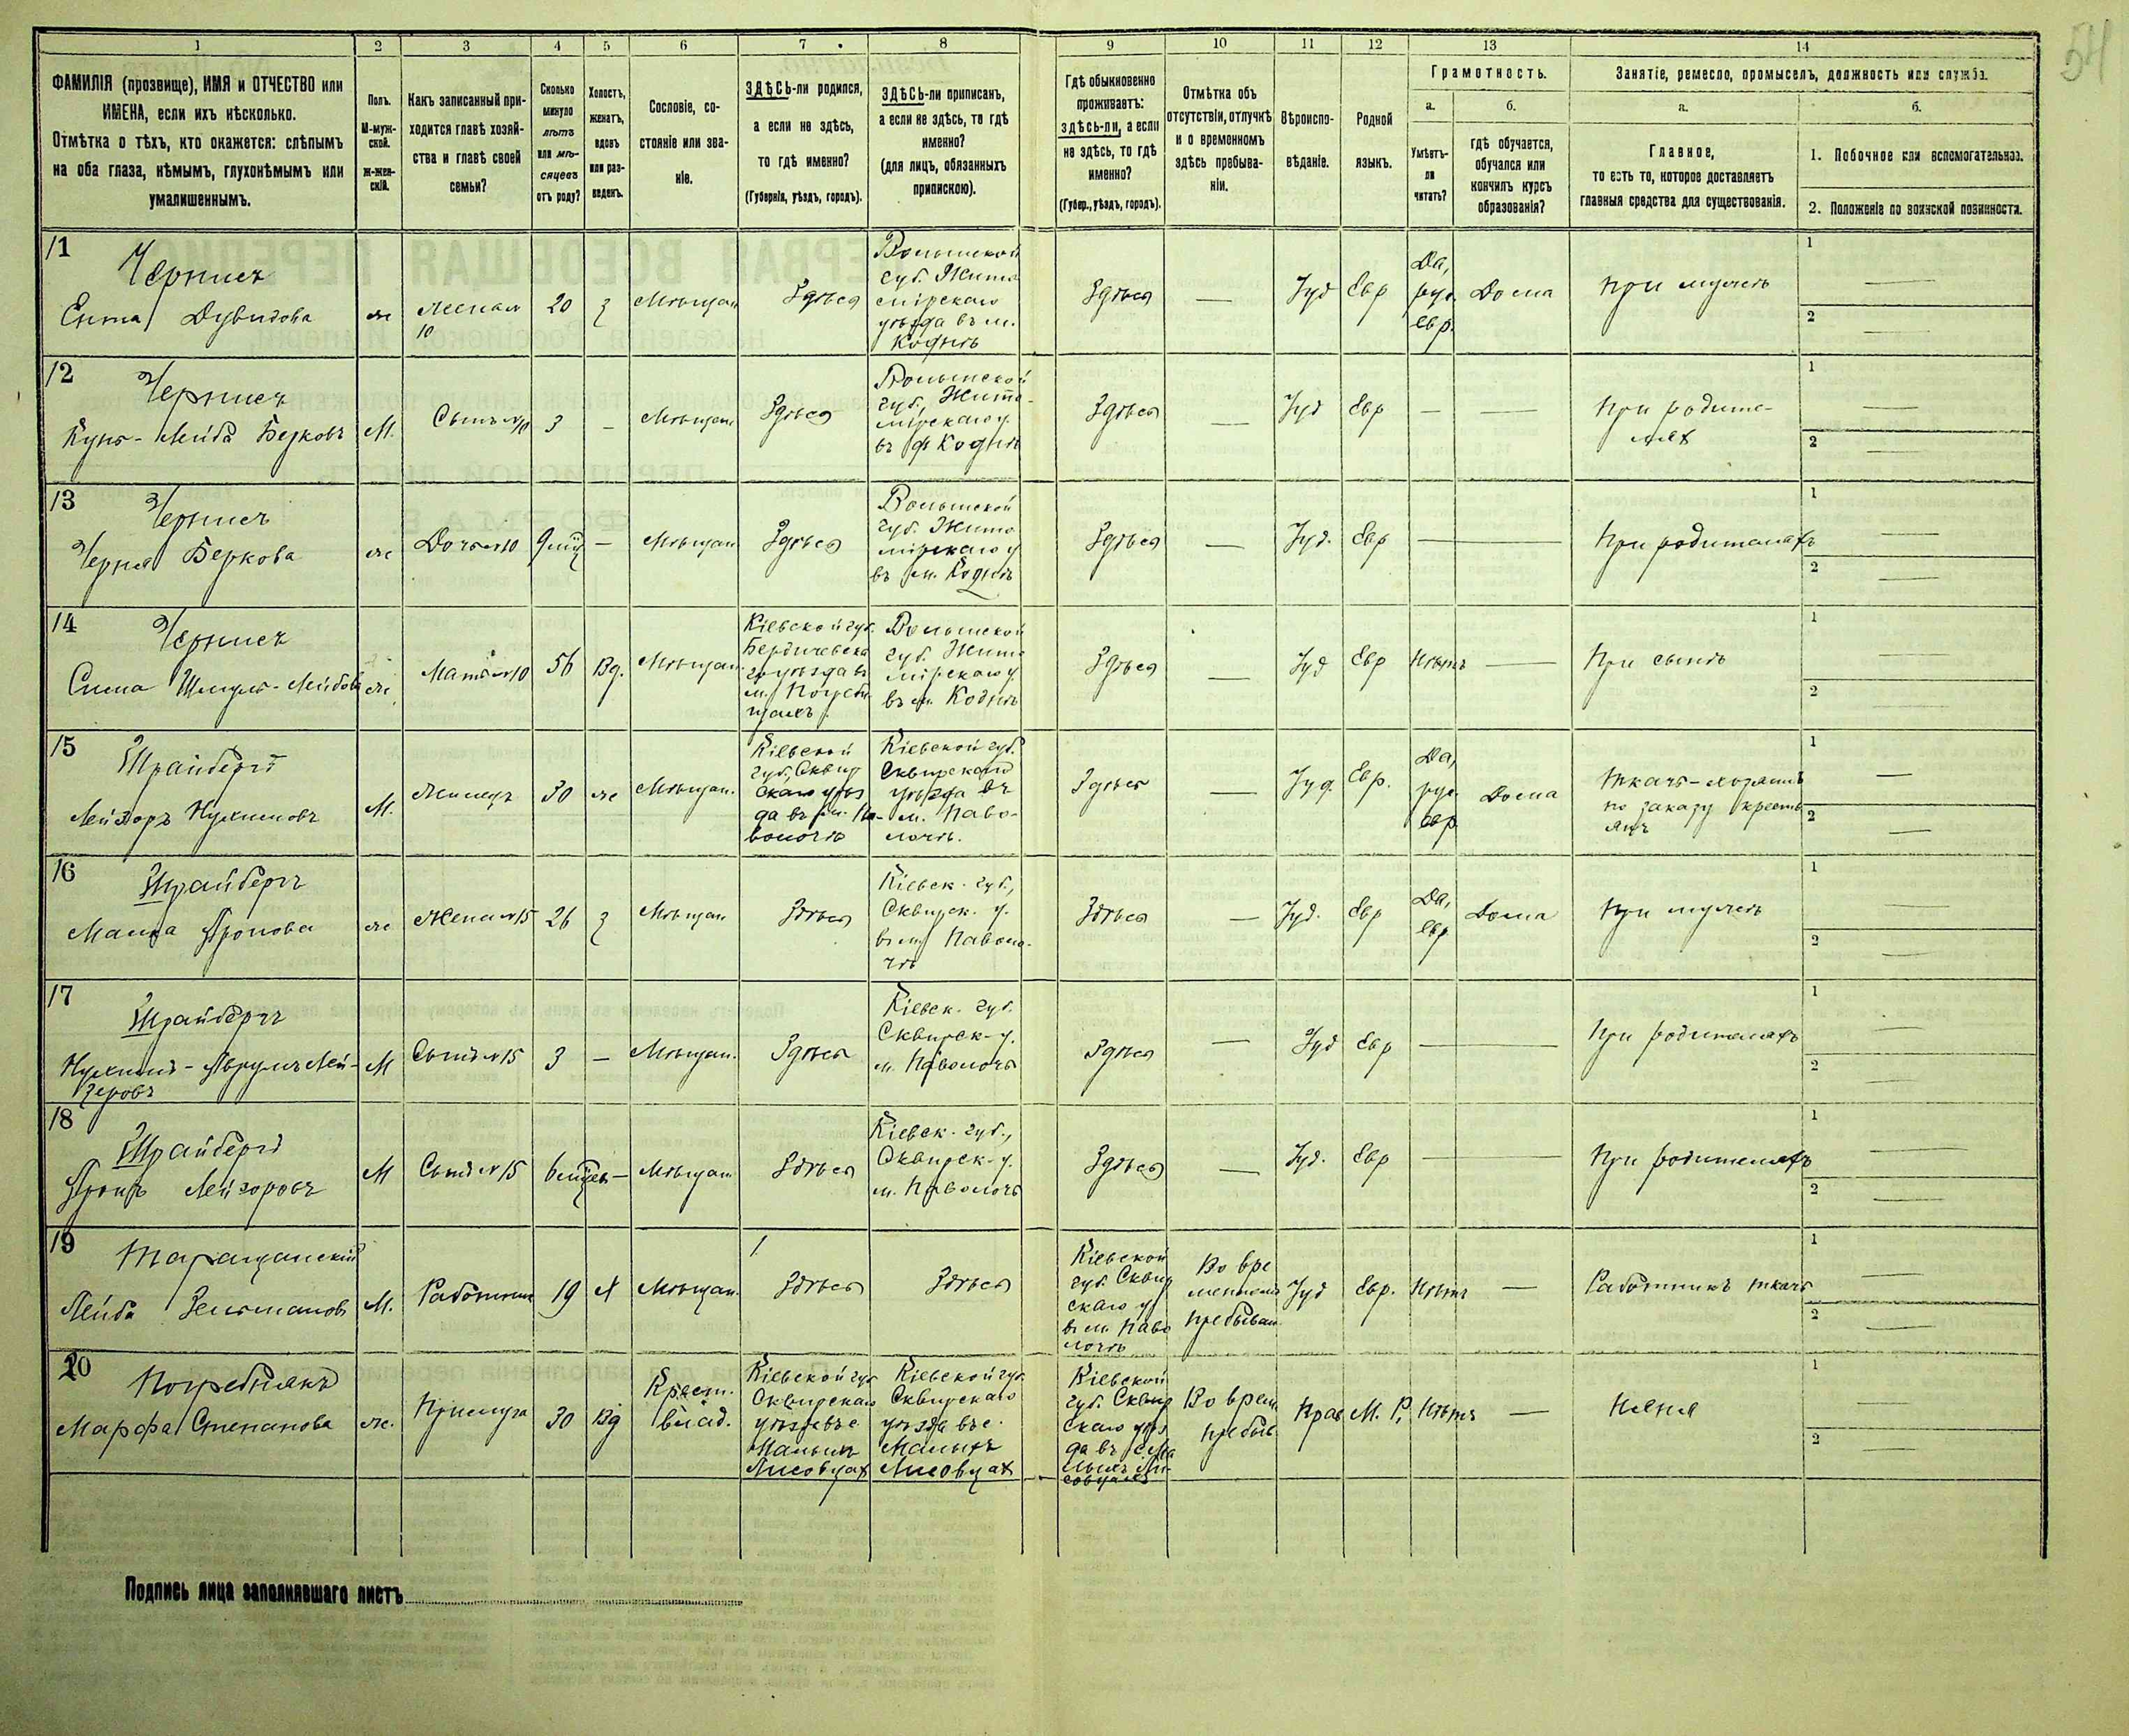 54
1 2 3 4 5 6 7 8 9 10 11 12 13 14
ФАМИЛІЯ (прозвище), ИМЯ и ОТЧЕСТВО или
ИМЕНА, если ихъ нѣсколько.
Отмѣтка о тѣхъ, кто окажется: слѣпымъ
на оба глаза, нѣмымъ, глухонѣмымъ или
умалишеннымъ.
Полъ.
М-муж-
ской.
Ж-жен-
скій.
Какъ записанный при-
ходится главѣ хозяй-
ства и главѣ своей
семьи?
Сколько
минуло
лѣтъ
или мѣ-
сяцевъ
отъ роду?
Холостъ,
женатъ,
вдовъ
или раз-
веденъ.
Сословіе, со-
стояніе или зва-
ніе.
ЗДѢСЬ-ли родился,
а если не здѣсь,
то гдѣ именно?
(Губернія, уѣздъ, городъ).
ЗДѢСЬ-ли приписанъ,
а если не здѣсь, то гдѣ
именно?
(для лицъ, обязанныхъ
припискою).
Гдѣ обыкновенно
проживаетъ:
здѣсь-ли, а если
не здѣсь, то гдѣ
именно?
(Губер., уѣздъ, городъ).
Отмѣтка объ
отсутствіи, отлучкѣ
и о временномъ
здѣсь пребыва-
ніи.
Вѣроиспо-
вѣданіе.
Родной
языкъ.
Грамотность.
а.
Умѣетъ-
ли
читать?
б.
гдѣ обучается,
обучался или
кончилъ курсъ
образованія?
Занятіе, ремесло, промыселъ, должность или служба.
а.
Главное,
то есть то, которое доставляетъ
главныя средства для существованія.
б.
1. Побочное или вспомогательное.
2. Положеніе по воинской повинности.
11
Черписъ
Ента Дувидова
ж
жена 10
20
З
Мѣщан
Здѣсь
Волынской
губ. Жито
мірскаго
уѣзда въ м.
Коднѣ
Здѣсь
—
Іуд
Евр
Да,
рус.
евр.
Дома
При мужѣ
1 —
2 —
12
Черписъ
Лейба Берковъ
М.
Сынъ №10
3
—
Мѣщан
Здѣсь
Волынской
губ., Жито-
мірскаго у.
въ м Коднѣ
Здѣсь
—
Іуд
Евр
—
—
При родите-
лях
1 —
2 —
13
Черписъ
Черня Беркова
ж
Дочь №10
9 мѣ
—
Мѣщан
Здѣсь
Волынской
губ. Жито
мірскаго у
въ м. Коднѣ
Здѣсь
—
Іуд.
Евр
—
При родителяхъ
1 —
2 —
14
Черписъ
Сима Шмуль-Лейбова
ж.
Мать №10
56
Вд.
Мѣщан.
Кіевской губ.
Бердичевска
го уѣзда въ
м. Погреби
щахъ
Волынской
губ. Жито
мірскаго у.
въ м. Коднѣ
Здѣсь
—
Іуд
Евр
Нѣтъ
—
При сынѣ
1 —
2 —
15
Шрайбергъ
Лейзоръ Нухимовъ
М.
Жилецъ
30
ж
Мѣщан.
Кіевской
губ., Сквир
скаго уѣз
да въ м. Па-
волочѣ
Кіевской губ.
Сквирскаго
уѣзда въ
м. Паво-
лочѣ.
Здѣсь
—
Іуд.
Евр.
Да,
рус.
евр
Дома
Ткачъ-хозяинъ
по заказу кресть
янъ
1 —
2 —
16
Шрайбергъ
Малка Аронова
ж
Жена №15
26
З
Мѣщан
Здѣсь
Кіевск. губ.,
Сквирск. у.
въ м. Паволо-
чѣ
Здѣсь
—
Іуд.
Евр
Да,
евр
Дома
При мужѣ
1 —
2 —
17
Шрайбергъ
Нухимъ-Аврумъ Лей-
зеровъ
М
Сынъ №15
3
—
Мѣщан.
Здѣсь
Кіевск. губ.
Сквирск-у.
м. Паволочь
Здѣсь
—
Іуд
Евр
—
При родителяхъ
1 —
2 —
18
Шрайбергъ
Аронъ Лейзоровъ
М
Сынъ №15
6 мѣсяц
—
Мѣщан
Здѣсь
Кіевск. губ.,
Сквирск-у.
м. Паволочь
Здѣсь
—
Іуд.
Евр
—
При родителяхъ
1 —
2 —
19
Таращанскій
Лейба Зельмановъ
М.
Работник
19
Х
Мѣщан.
Здѣсь
Здѣсь
Кіевской
губ. Сквир
скаго у
въ м. Паво
лочѣ
Во вре
менномъ
пребыван
Іуд
Евр.
Нѣтъ
—
Работникъ ткачъ
1 —
2 —
20
Погребнякъ
Марфа Степанова
ж.
Прислуга
30
Вд
Крест.
влад.
Кіевской губ
Сквирскаго
уѣзда въ с
Малых
Лисовцах
Кіевской губ.
Сквирскаго
уѣзда въ с.
Малыхъ
Лисовцах
Кіевской
губ. Сквир
скаго уѣз
да въ с Ма
лыхъ Ли-
совцахъ
Во врем
пребыв
Прав
М. Р.
Нѣтъ
—
Няня
1 —
2 —
Подпись лица заполнявшаго листъ